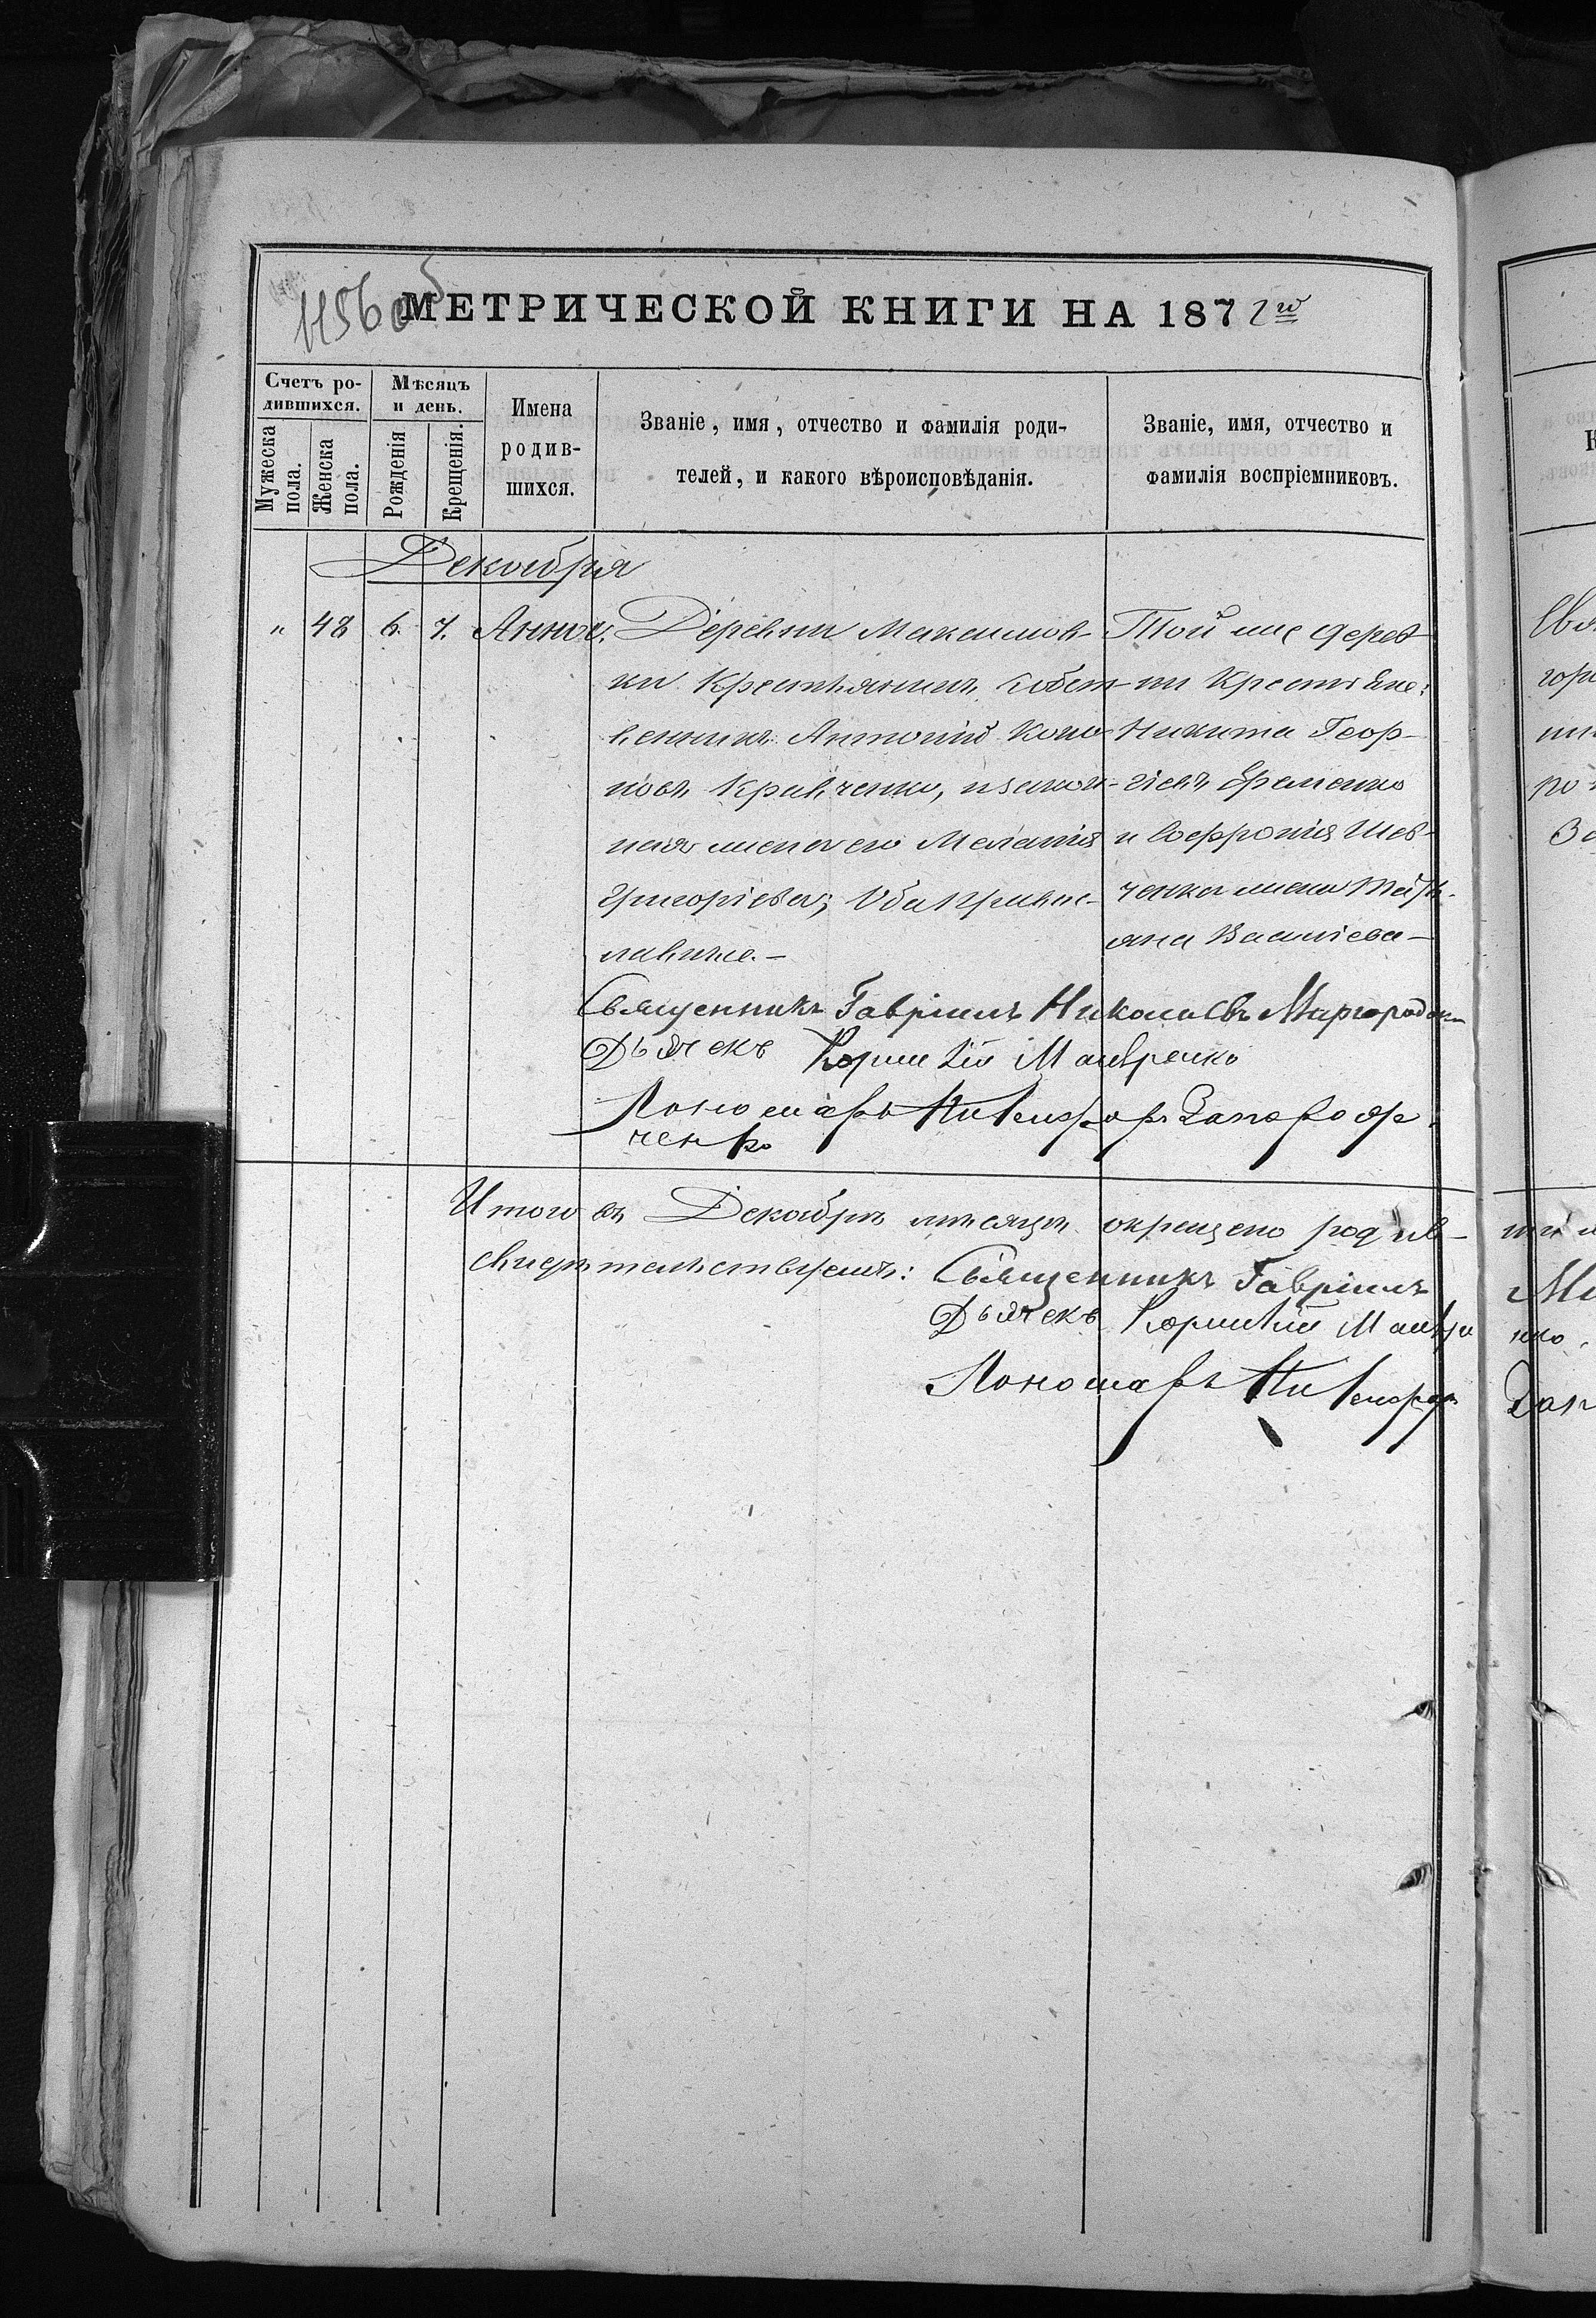 МЕТРИЧЕСКОЙ КНИГИ НА 1872го
Счетъ ро-
дившихся.
Мужеска
пола.
Женска
пола.
Мѣсяцъ
и день.
Рожденія
Крещенія.
Имена
родив-
шихся.
Званіе, имя, отчество и фамилія роди-
телей, и какого вѣроисповѣданія.
Званіе, имя, отчество и
фамилія воспріемниковъ.
Декабря
„ 48 6. 7. Анна.
Деревни Максимов-
ки Крестьянинъ собст-
венникъ Антоній Коно-
новъ Кравченко, и закон-
ная жена его Меланія
Григоріева; Оба право-
славные.-
Той же дерев-
ни Крестьяне:
Никита Геор-
гіевъ Еременко
и Софронія Шев-
ченка жена Тать，
яна Василіева-
Священникъ Гавріилъ Николаевъ
Дьячекъ
Пономарь Никифоръ Запорож-
ченко
Итого въ Декабрѣ мѣсяцѣ окрещено родив-
свидѣтельствуемъ: Священникъ Гавріилъ
Дьячекъ
Пономарь Никифоръ